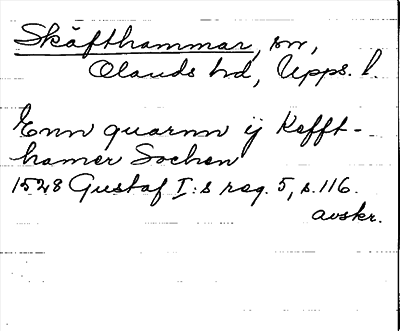 Skäfthammar, sn,
Olands hd, Upps. l.
Enn quarnn ij Kefft-
hamer Sochen
1528 Gustaf I:s reg. 5, s. 116.
avskr.